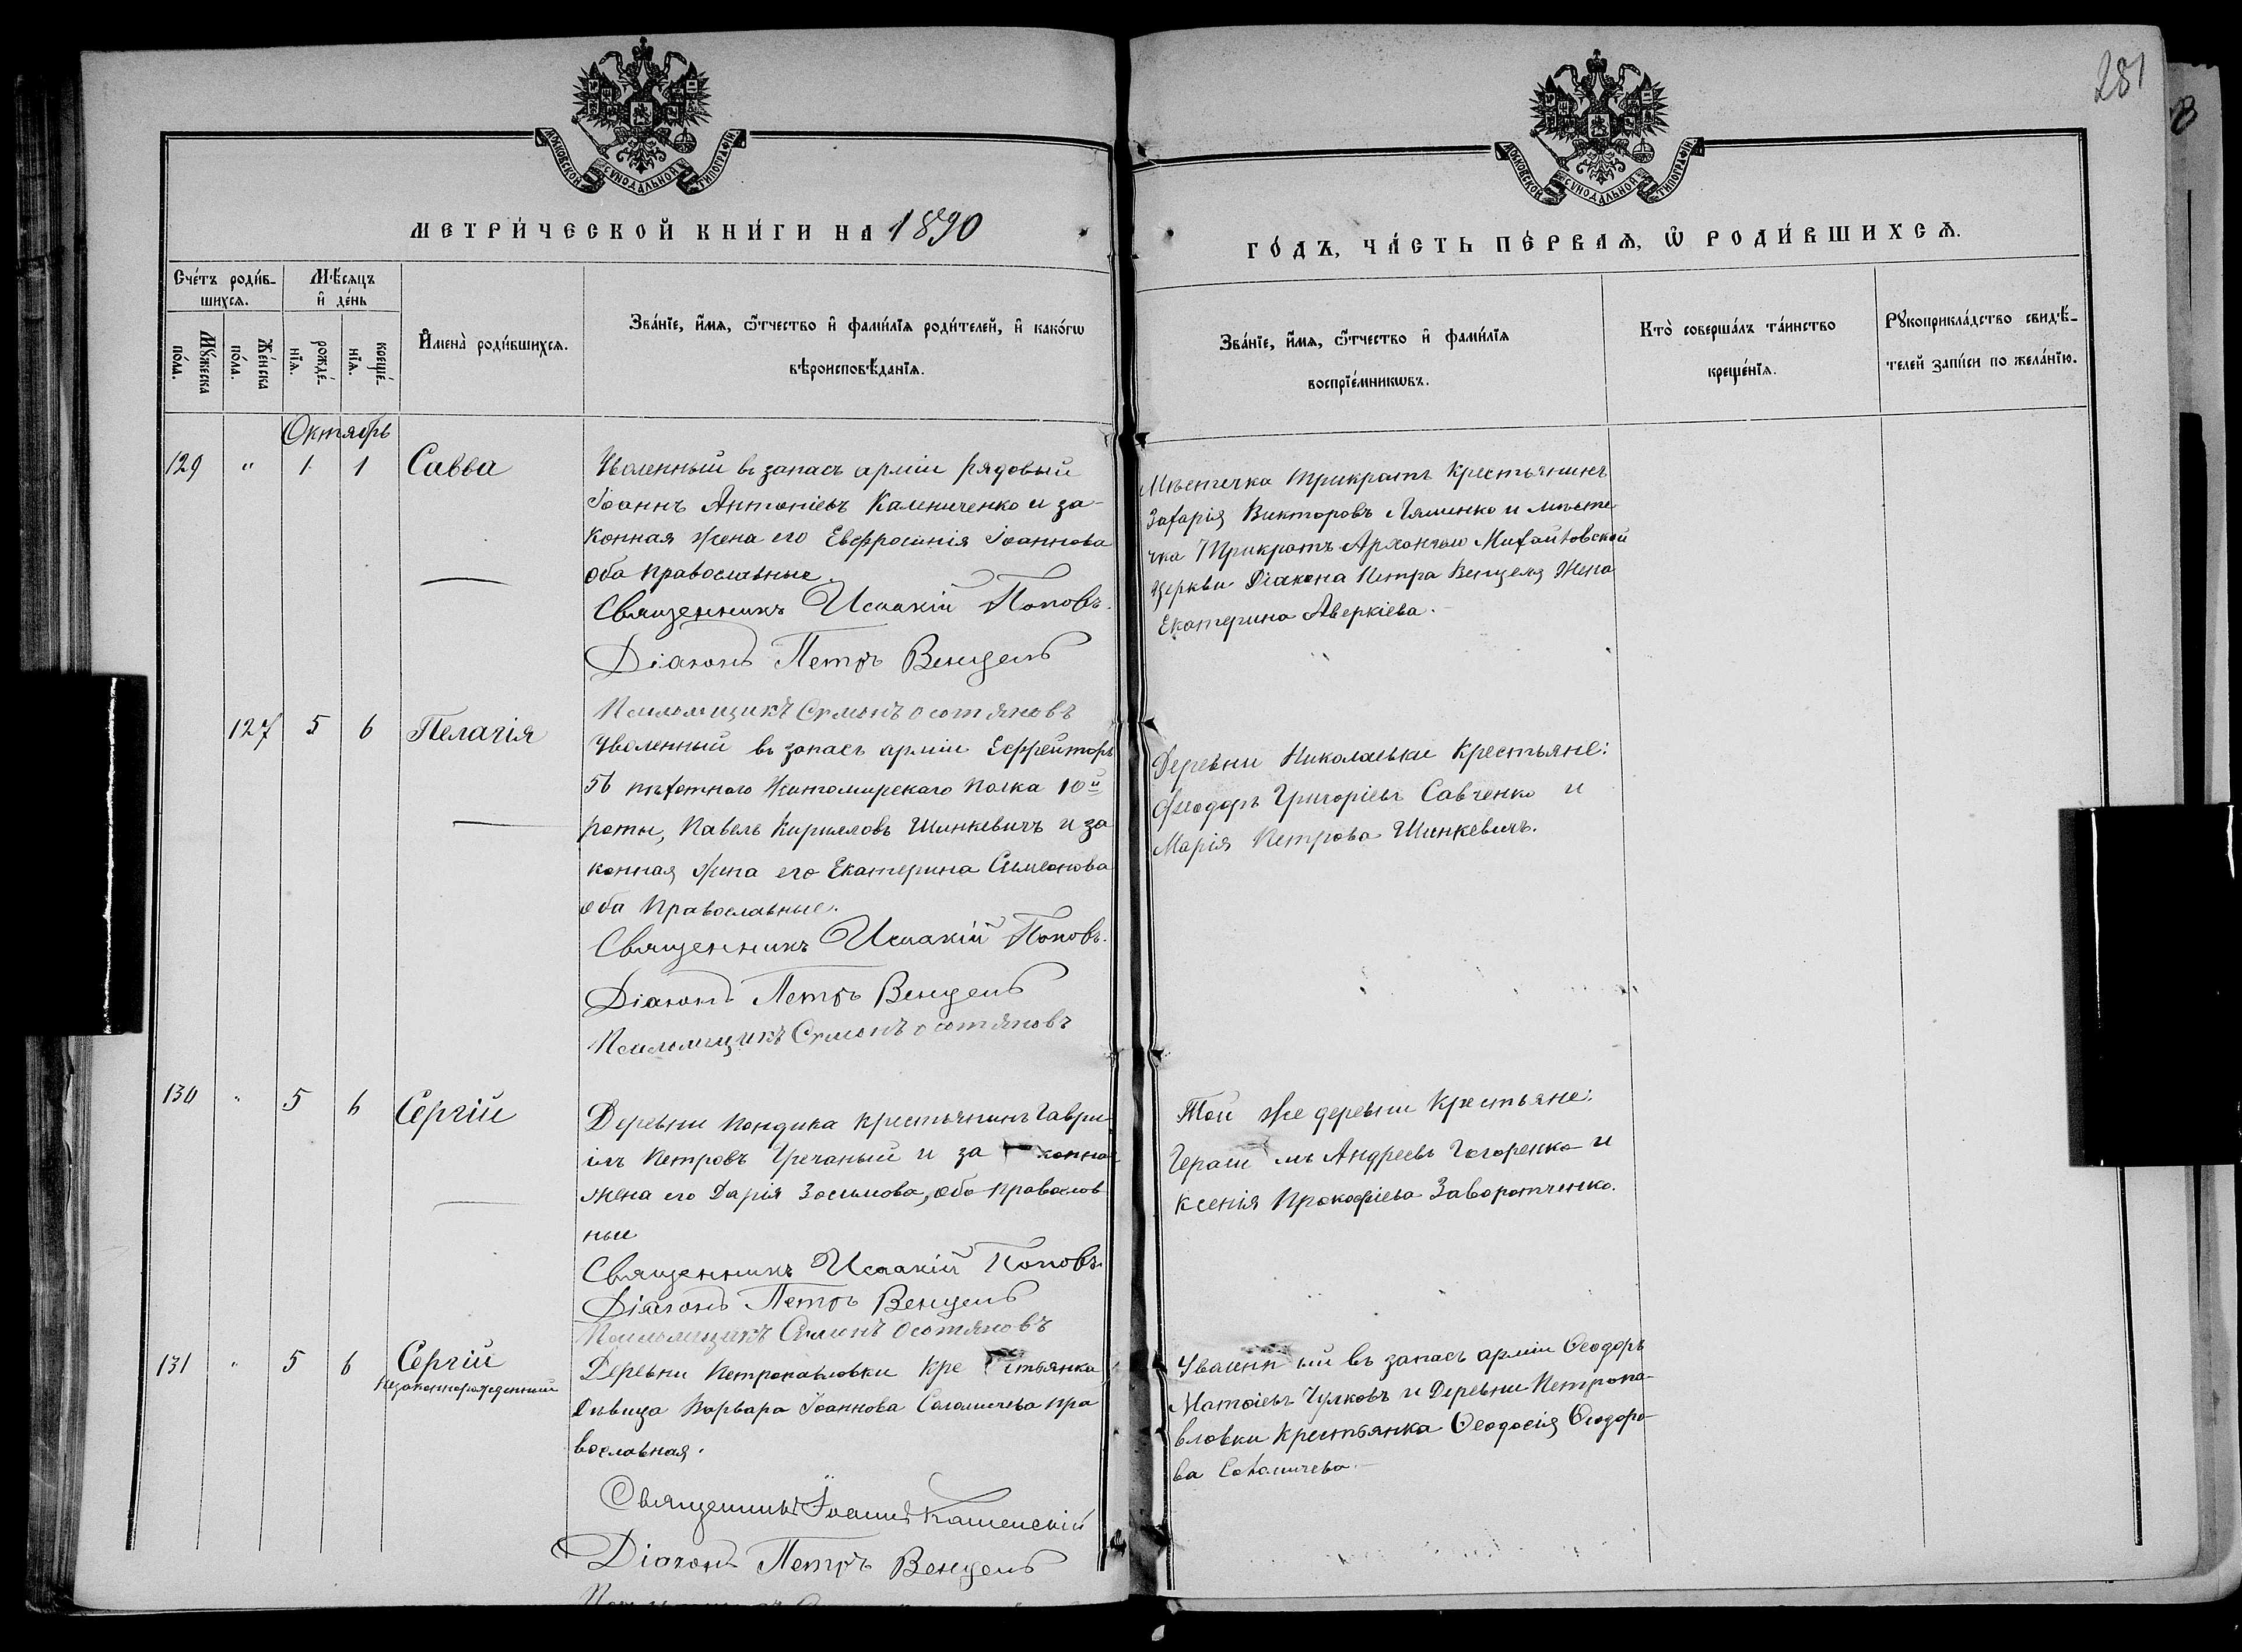 281
МОСКОВСКОЙ СУНОДАЛЬНОЙ ТИПОГРАФІИ
МОСКОВСКОЙ СУНОДАЛЬНОЙ ТИПОГРАФІИ
МЕТРИ́ЧЕСКОЙ КНИ́ГИ НА 1890
ГО́ДЪ, ЧА́СТЬ ПЕ́РВАѦ, Ѡ҆ РОДИ́ВШИХСѦ.
Сче́тъ роди́в-
шихсѧ.
Мꙋ́жеска по́ла.
Же́нска по́ла.
Мѣ́сѧцъ
и҆ де́нь
рожде́нїѧ.
креще́нїѧ.
И҆мена̀ роди́вшихсѧ.
Зва́нїе, и҆́мѧ, ѻ҆́тчество и҆ фами́лїѧ роди́телей, и҆ како́гѡ
вѣроисповѣ́данїѧ.
Зва́нїе, и҆́мѧ, ѻ҆́тчество и҆ фами́лїѧ
воспрїе́мникѡвъ.
Кто̀ соверша́лъ та́инство
креще́нїѧ.
Рꙋкоприкла́дство свидѣ́-
телей за́писи по жела́нїю.
Октябрь
129 " 1 1 Савва
Уволенный въ запасъ арміи рядовый
Іоаннъ Антоніевъ Калниченко и за-
конная жена его Евфросинія Іоаннова
оба православные.
Священникъ Исаакій Поповъ.
Діаконъ Петръ Венцель
Псаломщикъ
Мѣстечка Трикратъ Крестьянинъ
Захарія Викторовъ Ляшенко и мѣсте-
чка Трикратъ Архангело Михайловской
церкви Діакона Петра Венцеля Жена
Екатерина Аверкіева.
127 5 6 Пелагія
Уволенный въ запасъ арміи Ефрейторъ
56 пѣхотнаго Житомирскаго полка 10й
роты, Павелъ Кирилловъ Шинкевичъ и за
конная жена его Екатерина Симеонова
оба Православные.
Священникъ Исаакій Поповъ.
Діаконъ Петръ Венцель
Псаломщикъ
Деревни Николаевки Крестьяне:
Феодоръ Григоріевъ Савченко и
Марія Петрова Шинкевичъ.
130 " 5 6 Сергій
Деревни Кондика крестьянинъ Гаври
илъ Петровъ Гречаный и за конная
жена его Дарія Зосимова, оба православ
ные
Священникъ Исаакій Поповъ.
Діаконъ Петръ Венцель
Псаломщикъ
Той же деревни Крестьяне:
Гераси мъ Андреевъ Гогоренко и
Ксенія Прокофіева Заворотченко.
131 " 5 6 Сергій
незаконнорожденный
Деревни Петропавловки Кре стьянка
Дѣвица Варвара Іоаннова Соломичева пра
вославная.
Священникъ Іоаннъ
Діаконъ Петръ Венцель
Уволенн ый въ запасъ арміи Ѳеодоръ
Матѳіевъ Чулковъ и Деревни Петропа-
вловки Крестьянка Ѳеодосія Ѳеодоро-
ва Соломичева.